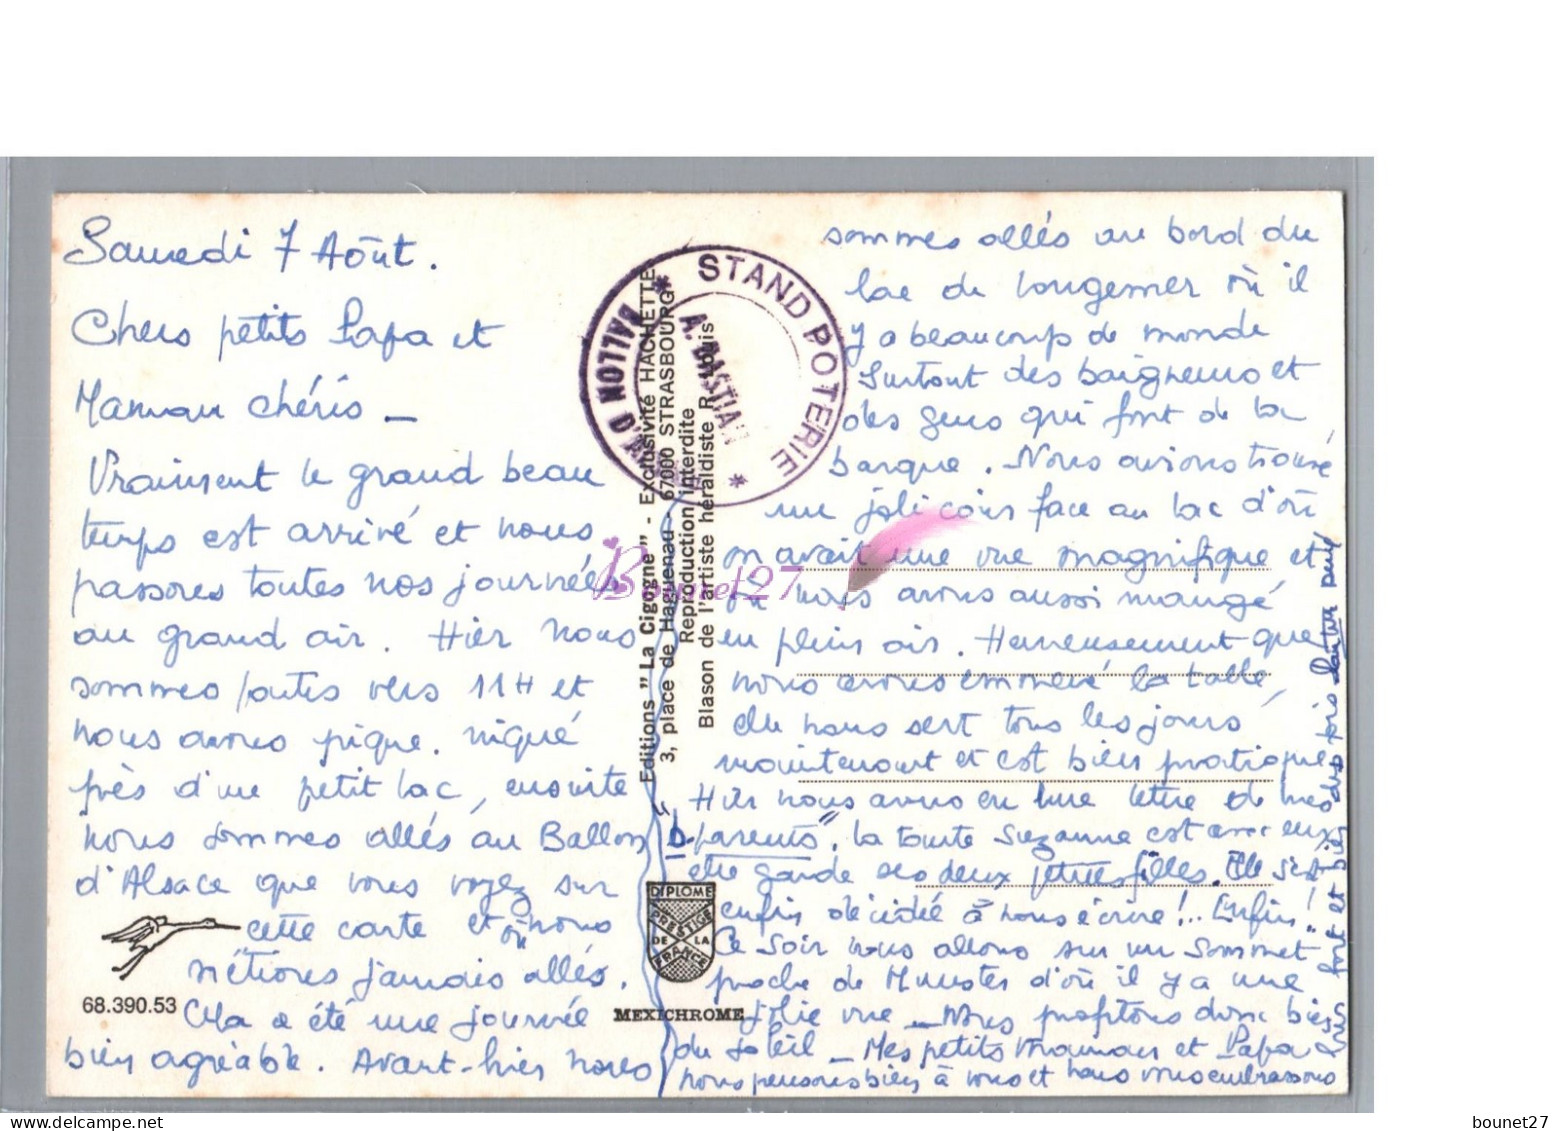 Samedi 7 Août.
Chers petits Papa et
Maman chéris -
Vraiment le grand beau
temps est arrivé et nous
passons toutes nos journées
au grand air. Hier nous
sommes partis vers 11H et
nous avons pique.niqué
près d'un petit lac, ensuite
nous sommes allés au Ballon
d'Alsace que vous voyez sur
cette carte et où nous
n'étions jamais allés.
Cela a été une journée
bien agréable. Avant-hier nous
68.390.53
sommes allés au bord du
lac de Longemer où il
y a beaucoup de monde
surtout des baigneurs et
des gens qui font de la
barque. Nous avions trouvé
un joli coin face au lac d'où
on avait une vue magnifique et
où nous avons aussi mangé
en plein air. Heureusement que
nous avons emmené la table,
elle nous sert tous les jours
maintenant et est bien pratique
Hier nous avons eu une lettre de mes
parents". La tante Suzanne est avec eux
elle garde ses deux petites filles. Elle s'est
enfin décidée à nous écrire!.. Enfin!
Ce soir nous allons sur un sommet
proche de Munster d'où il y a une
jolie vue - Nous profitons donc bien
du soleil - Mes petits Maman et Papa
nous pensons bien à vous et nous vous embrassons
fort et bien des fois
Editions "La Cigogne" - Exclusivité HACHETTE
3, place de Haguenau - 67000 STRASBOURG
Reproduction interdite
Blason de l'artiste héraldiste R. Louis
STAND POTERIE
* BALLON D'ALSACE *
A. BASTIAN
Bounet27
DIPLOME
PRESTIGE
DE LA
FRANCE
MEXICHROME
bounet27